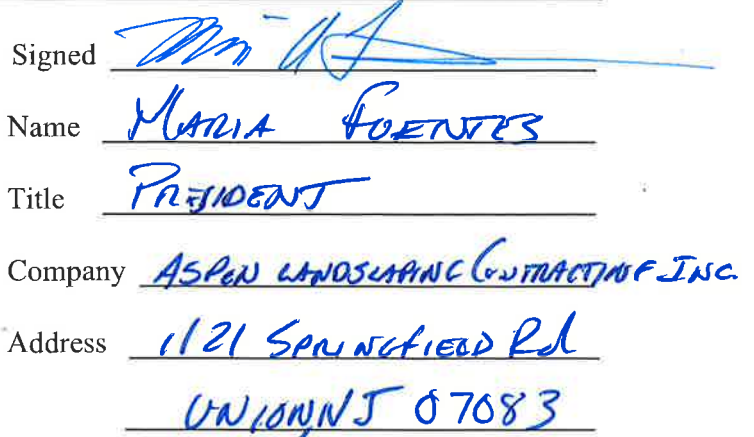 Signed
Name MARIA FUENTES
Title PRESIDENT
Company ASPEN LANDSCAPING CONTRACTING INC.
Address 1121 SPRINGFIELD Rd
UNION, NJ 07083